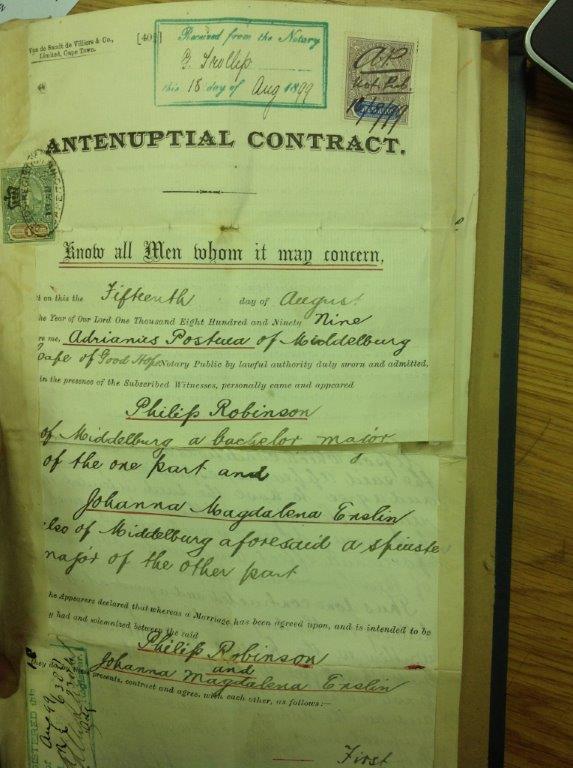 Van de Sandt de Villiers & Co.,
Limited, Cape Town.
[40]
Received from the Notary
G. Trollip
this 18 day of Aug 1899
Not. Pub.
ANTENUPTIAL CONTRACT.
Know all Men whom it may concern,
on this the Fifteenth day of August
he Year of Our Lord One Thousand Eight Hundred and Ninety Nine
re me, Adrianus Postma of Middelburg
Cape of Good Hope Notary Public by lawful authority duly sworn and admitted,
in the presence of the Subscribed Witnesses, personally came and appeared
Philip Robinson
of Middelburg a bachelor major
of the one part and
Johanna Magdalena Erslin
lso of Middelburg aforesaid a spinste
major of the other part
he Appearers declared that whereas a Marriage has been agreed upon, and is intended to be
y had and solemnized between the said
Philip Robinson
and
Johanna Magdalena Erslin
they do by these presents, contract and agree, with each other, as follows:—
First